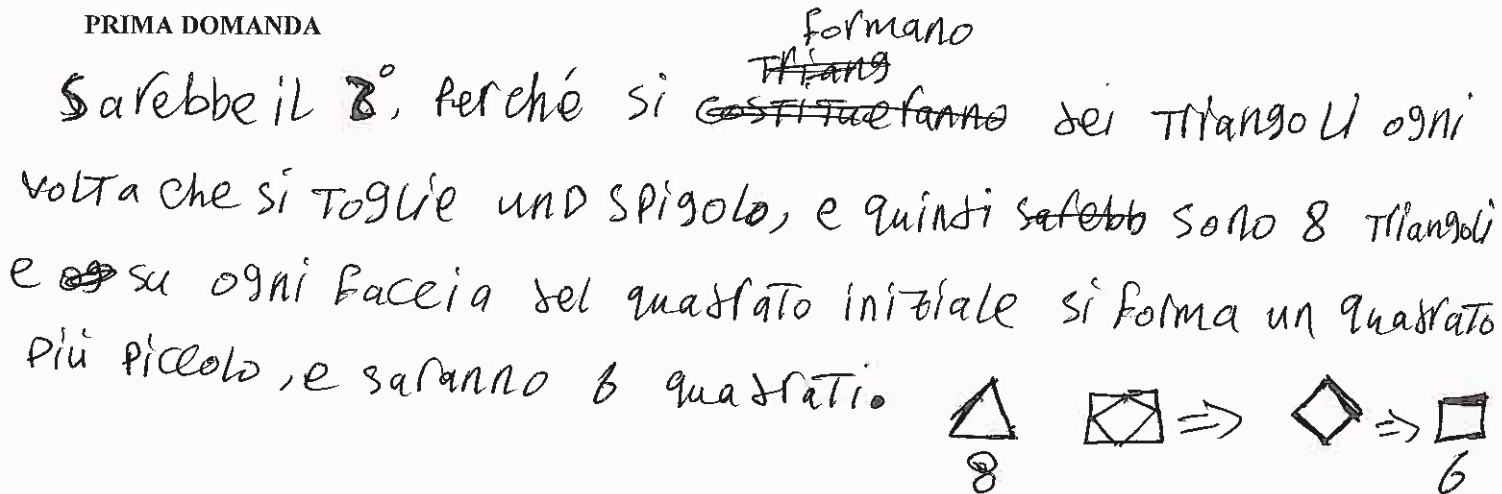 PRIMA DOMANDA
formano
Triang
Sarebbe il 2°, Perché si costituefanno dei Triangoli ogni
volta che si Toglie uno spigolo, e quindi sarebb sono 8 Triangoli
e og su ogni faccia del quadrato iniziale si forma un quadrato
più piccolo, e saranno 6 quadrati.
8 6